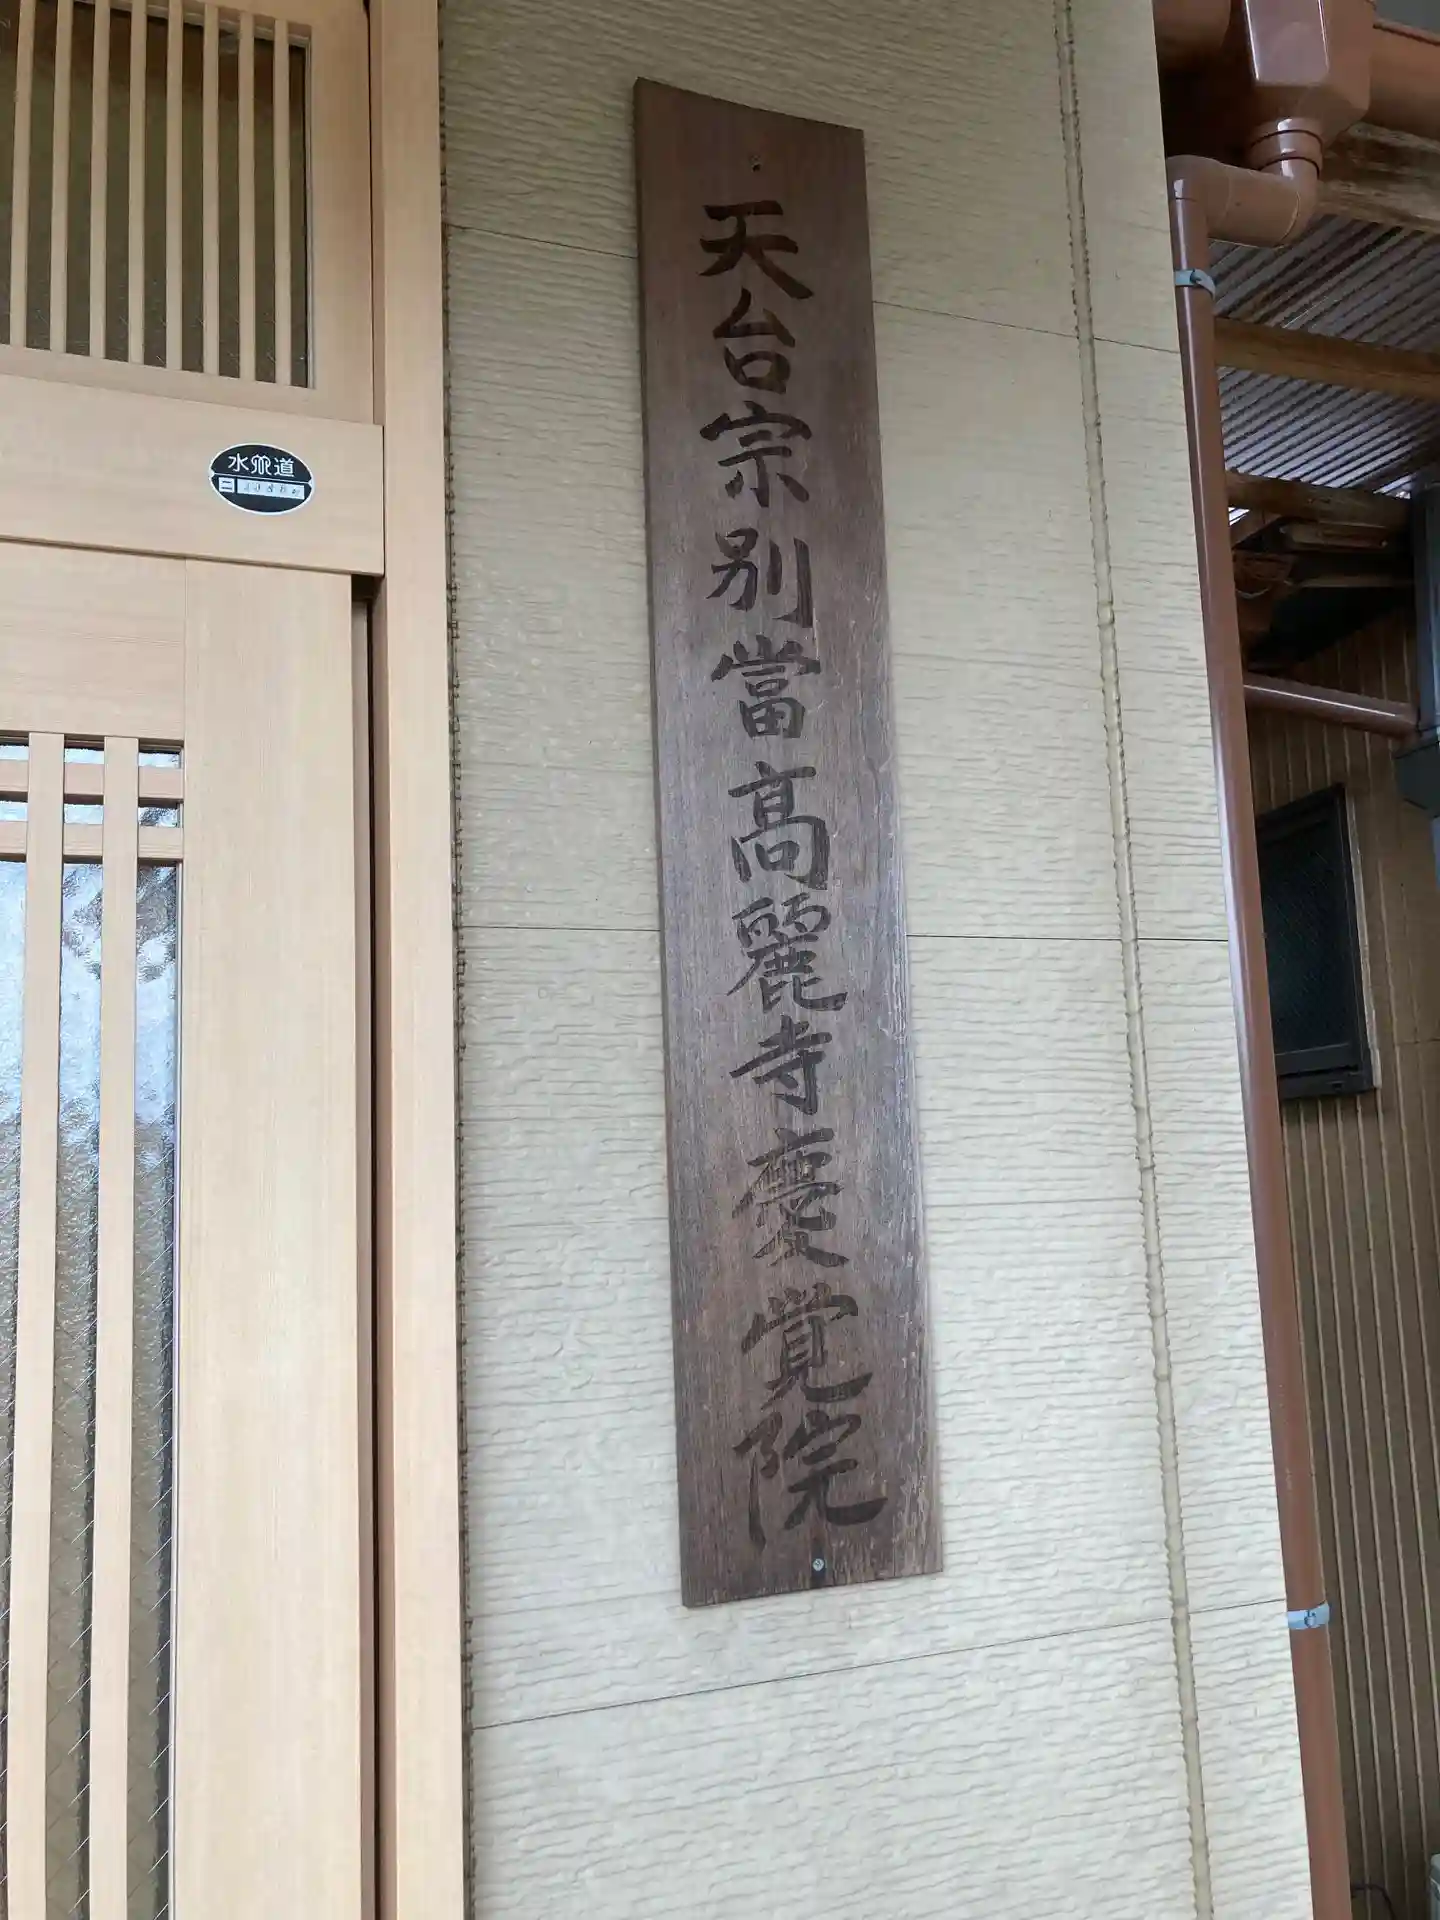 天台宗別當高麗寺慶覚院
水道
二